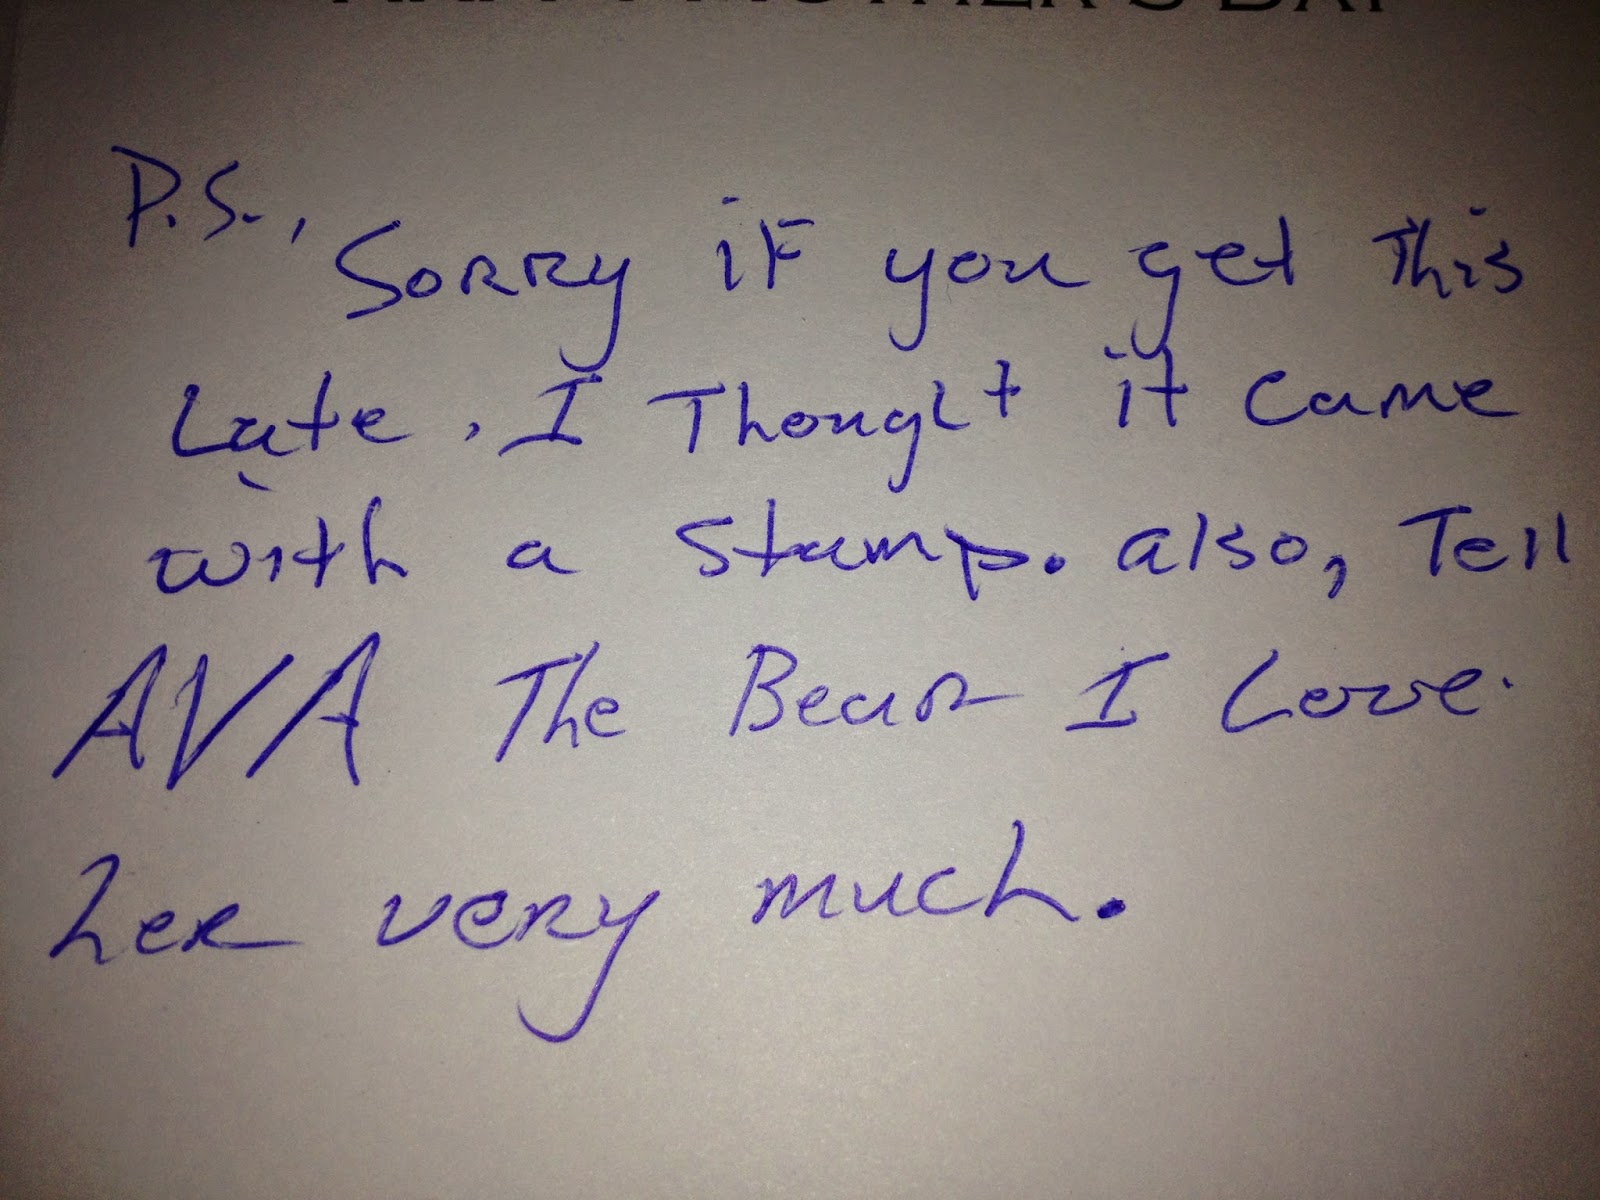 HAPPY MOTHER'S DAY
P.S., Sorry if you get This
Late. I Thought it came
with a stamp. also, Tell
AVA The Bear I Love
her very much.